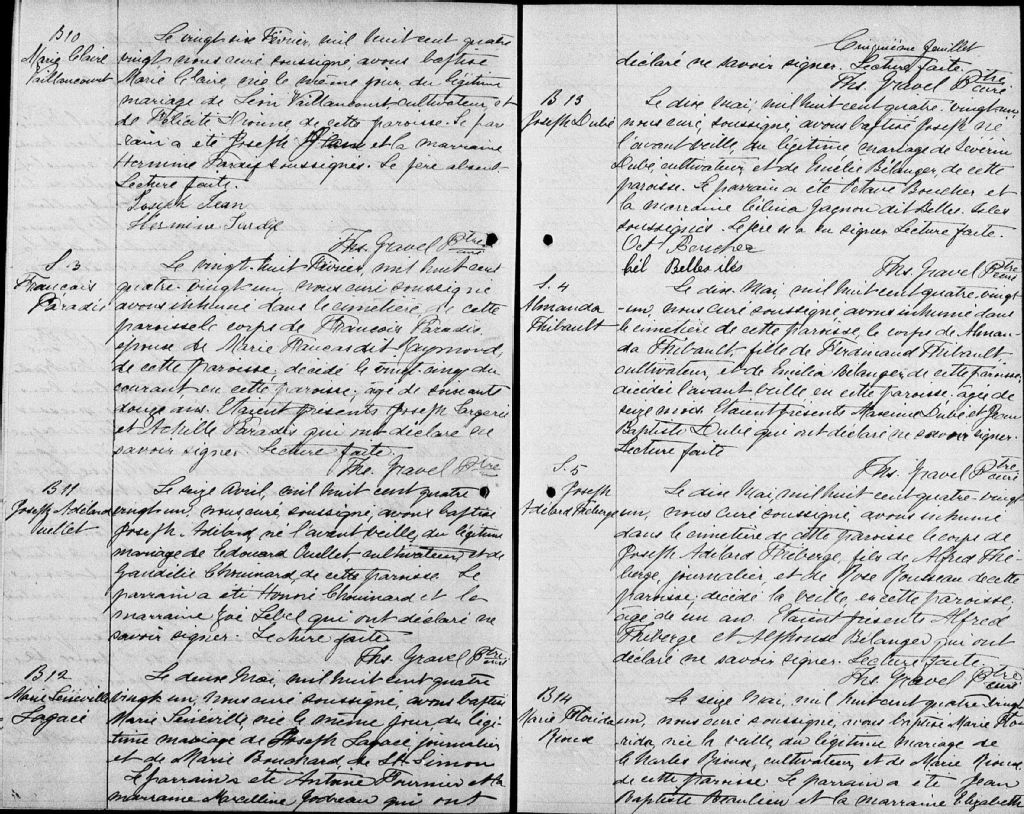 B10
Marie Claire
Vaillancourt
Le vingt six Février, mil huit cent quatre
vingt, nous curé soussigné, avons baptisé
Marie Claire, née le même jour, du légitime
mariage de Léon Vaillancourt, cultivateur, et
de Félicité Dionne de cette paroisse. Le par
rain a été Joseph Jean et la marraine
Hermine Paradis soussignés. Le père absent.
Lecture faite.
Joseph Jean
Hermine
Ths. Gravel Ptre
curé
S. 3
Francois
Paradis
Le vingt-huit Février, mil huit cent
quatre-vingt un, nous curé soussigné
avons inhumé dans le cimetière de cette
paroisse le corps de Francois Paradis
epouse de Marie dit Raymond,
de cette paroisse, decidé le vingt cinq du
courant en cette paroisse, agé de soixante
douze ans. Etaient presents Joseph
et Achille Paradis qui ont déclaré ne
savoir signer. Lecture faite.
Ths. Gravel Ptre
B11
Joseph Adélard
Ouellet
Le seize Avril, mil huit cent quatre
vingt un, nous curé soussigné, avons baptisé
Joseph Adélard, né l'avant veille, du légitime
mariage de Edouard Ouellet cultivateur et de
Chouinard, de cette paroisse. Le
parrain a été Honoré Chouinard et la
marraine Zoé Lebel qui ont déclaré ne
savoir signer. Lecture faite
Ths. Gravel Ptre
curé
B12
Marie
Lagacé
Le deux Mai, mil huit cent quatre
vingt un, nous curé soussigné, avons baptisé
Marie née le même jour du légi
time mariage de Joseph Lagacé journalier
et de Marie Bouchard, de St. Simon
Le parrain a été Antoine Fournier et la
marraine Marcelline qui ont
Cinquième feuillet
déclaré ne savoir signer. Lecture faite.
Ths. Gravel Ptre
curé
B 13
Joseph Dubé
Le dix Mai, mil huit cent quatre-vingt un,
nous curé, soussigné avons baptisé Joseph né
l'avant veille, du légitime mariage de Séverin
Dubé, cultivateur, et de Emélie Bélanger, de cette
paroisse. Le parrain a été Octave Boucher et
la marraine Célina Gagnon dit Belles-Isles
soussignés. Le père n'a su signer. Lecture faite.
Oct Boucher
Cél Belles iles
Ths. Gravel Ptre
curé
S. 4
Almanda
Thibault
Le dix Mai, mil huit cent quatre-vingt-
un, nous curé soussigné avons inhumé dans
le cimetière de cette paroisse, le corps de Alman-
da Thibault, fille de Ferdinand Thibault
cultivateur, et de Emelia Bélanger, de cette paroisse,
décidée l'avant veille, en cette paroisse, agée de
seize mois. Etaient présents Maxime Dubé et Jean
Baptiste Dubé qui ont déclaré ne savoir signer.
Lecture faite
Ths. Gravel Ptre
curé
S. 5
Joseph
Adélard Théberge
Le dix Mai, mil huit cent quatre-vingt
un, nous curé soussigné, avons inhumé
dans le cimetière de cette paroisse le corps de
Joseph Adélard Théberge, fils de Alfred Thé-
berge, journalier, et de Rose Rousseau de cette
paroisse, decidé la veille, en cette paroisse,
âgé de un an. Etaient présents Alfred
Théberge et Alphonse Belanger qui ont
déclaré ne savoir signer. Lecture faite.
Ths. Gravel Ptre
curé
B14
Marie Florida
Rioux
Le seize Mai, mil huit cent quatre vingt
un, nous curé soussigné, avons baptisé Marie Flo-
rida, née la veille du légitime mariage de
Charles Rioux, cultivateur, et de Marie Rioux
de cette paroisse. Le parrain a été Jean
Baptiste Beaulieu et la marraine Elizabeth